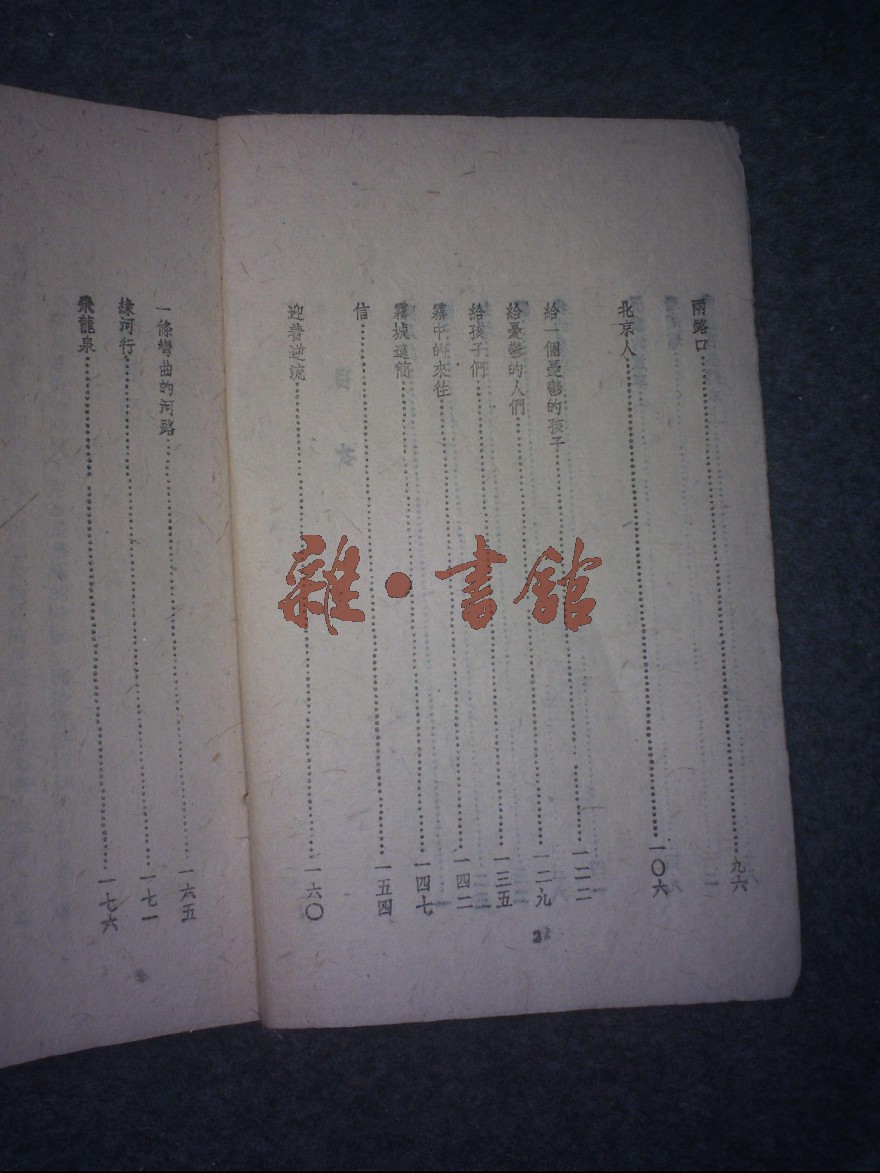 兩路口……九六
北京人……一〇六
給一個憂鬱的孩子……一二二
給憂鬱的人們……一二九
給孩子們……一三五
霧中的來往……一四二
霧城遠簡……一四七
信……一五四
迎着逆流……一六〇
一條彎曲的河路……一六五
河行……一七一
飛龍泉……一七六
雜·書館